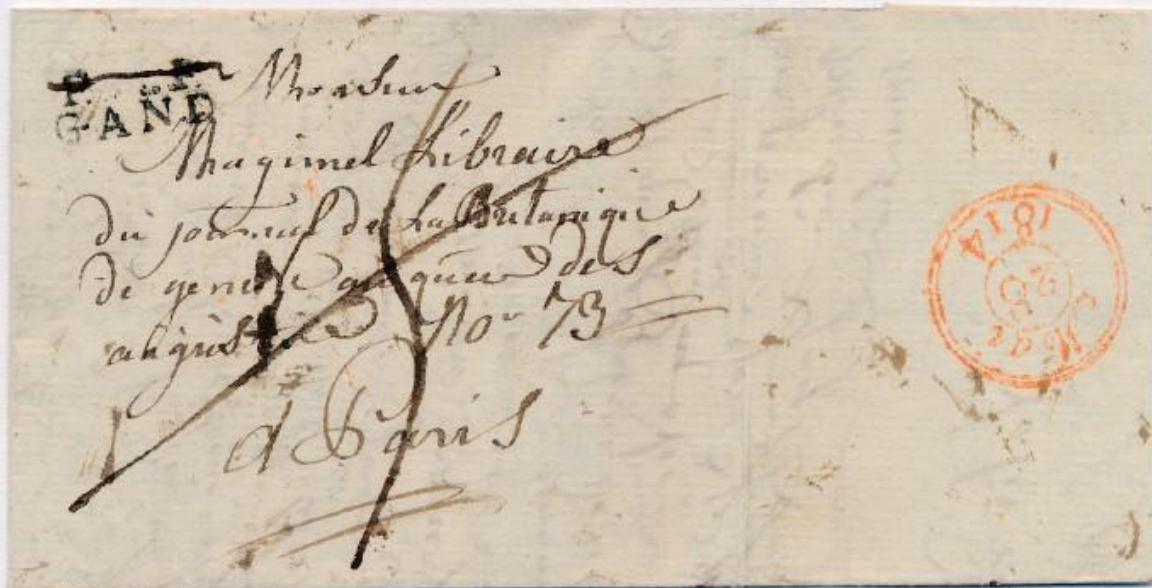 P. P.
GAND
Monsieur
Magimel Libraire
du journal de La Britanique
de geneve au quai des
augustin No 73
a Paris
1814